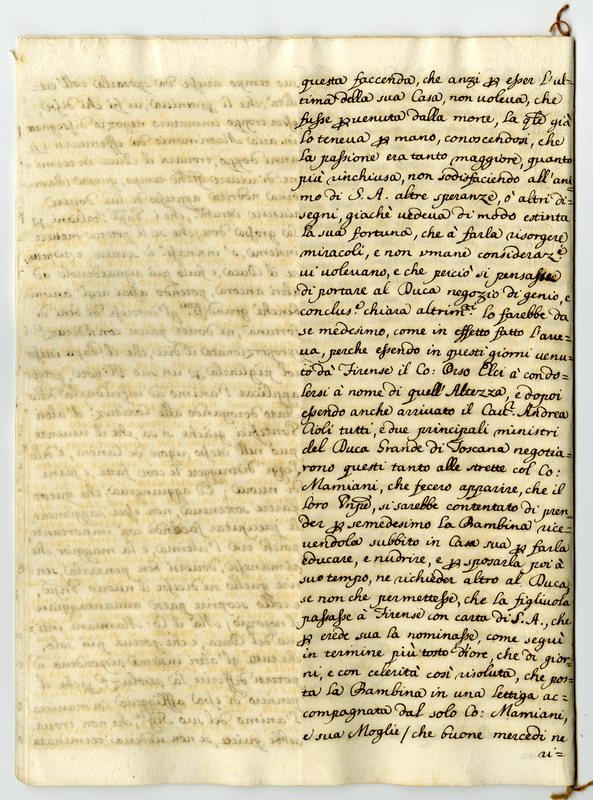 questa faccenda, che anzi p esser l'ul=
tima della sua Casa, non voleva, che
fusse pvenuta dalla morte, la qle già
lo teneva p mano, conoscendosi, che
la passione era tanto maggiore, quanto
più rinchiusa, non sodisfaciendo all'ani=
mo di S. A. altre speranze, ò altri di=
segni, giachè vedeva di modo estinta
la sua fortuna, che à farla risorgere
miracoli, e non vmane considerarz.e
vi volevano, e che perciò si pensasse
di portare al Duca negozio di genio, e
conclus.e chiara altrim.ti lo farebbe da
se medesimo, come in effetto fatto l'ave=
va, perche essendo in questi giorni venu=
to dà Firense il Co: Orso Elci à condo=
lersi à nome di quell'Altezza, e dopoi
essendo anche arrivato il Cau.r Andrea
Cioli tutti, e due principali ministri
del Duca Grande di Toscana negotia=
rono questi tanto alle strette col Co:
Mamiani, che fecero apparire, che il
loro Pnpe, si sarebbe contentato di pren=
der p semedesimo la Bambina rice=
vendola subbito in Casa sua p farla
educare, e nudrire, e p sposarla poi à
suo tempo, ne richieder altro al Duca,
se non che permettesse, che la figliuola
passasse à Firense con carta di S. A., che
p erede sua la nominasse, come seguì
in termine più tosto d'ore, che di gior=
ni, e con celerità così risoluta, che pos=
ta la Bambina in una lettiga ac=
compagnata dal solo Co: Mamiani,
e sua Moglie / che buone mercedi ne
ri=